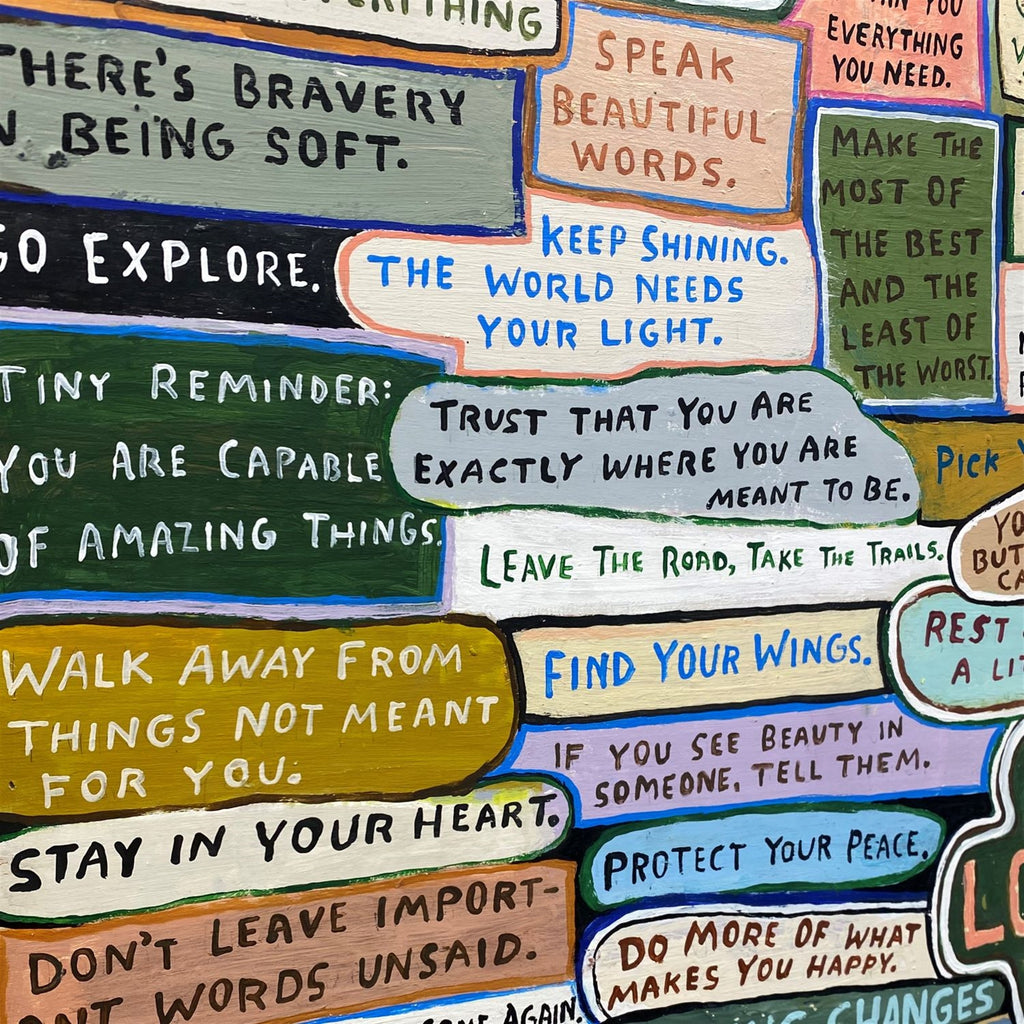 SPEAK
BEAUTIFUL
WORDS.
YOU
EVERYTHING
YOU NEED.
THERE'S BRAVERY
BEING SOFT.
MAKE THE
MOST OF
THE BEST
AND THE
LEAST OF
THE WORST.
GO EXPLORE.
KEEP SHINING.
THE WORLD NEEDS
YOUR LIGHT.
TINY REMINDER:
YOU ARE CAPABLE
OF AMAZING THINGS.
TRUST THAT YOU ARE
EXACTLY WHERE YOU ARE
MEANT TO BE.
PICK
LEAVE THE ROAD, TAKE THE TRAILS.
WALK AWAY FROM
THINGS NOT MEANT
FOR YOU.
FIND YOUR WINGS.
REST
A
IF YOU SEE BEAUTY IN
SOMEONE, TELL THEM.
STAY IN YOUR HEART.
PROTECT YOUR PEACE.
DON'T LEAVE IMPORT-
ANT WORDS UNSAID.
DO MORE OF WHAT
MAKES YOU HAPPY.
AGAIN.
CHANGES